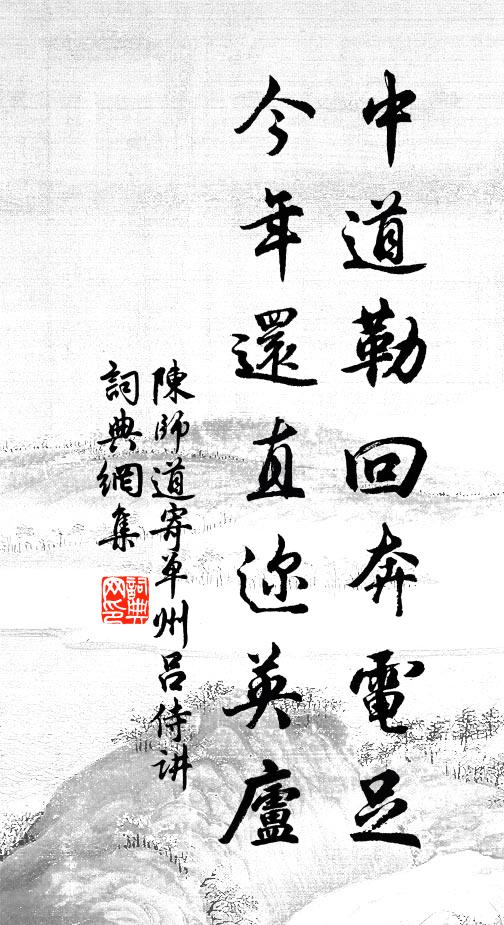 中道勒回奔電足
今年還直迩英廬
陳師道寄单州呂侍讲
詞典網集
詞典
网印